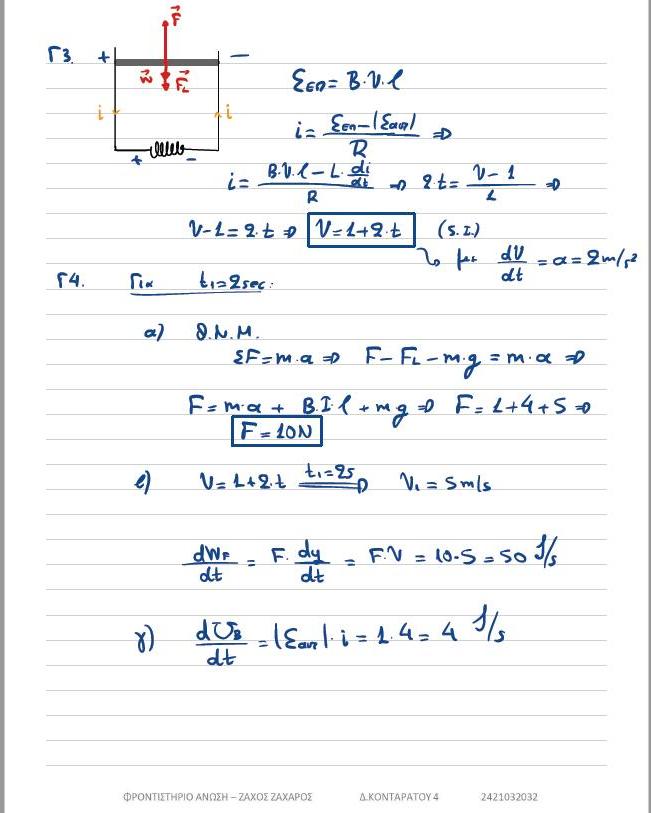 Γ3.
F⃗
+ −
w⃗ F⃗L
i i
+ −
Εεπ = B.V.l
i = (Εεπ − |Εαυτ|) / R ⇒
i = (B.V.l − L. di/dt) / R ⇒ 2t = (V − 1) / 1 ⇒
V − 1 = 2.t ⇒ V = 1 + 2.t (S.I.)
↳ με dV/dt = α = 2m/s²
Γ4. Για t₁ = 2sec:
α) Θ.Ν.Μ.
ΣF = m.α ⇒ F − FL − m.g = m.α ⇒
F = m.α + B.I.l + mg ⇒ F = 1 + 4 + 5 ⇒
F = 10N
β) V = 1 + 2.t t₁=2s ⇒ V₁ = 5m/s
dWF/dt = F. dy/dt = F.V = 10.5 = 50 J/s
γ) dUB/dt = |Εαυτ|. i = 1.4 = 4 J/s
ΦΡΟΝΤΙΣΤΗΡΙΟ ΑΝΩΣΗ – ΖΑΧΟΣ ΖΑΧΑΡΟΣ Δ.ΚΟΝΤΑΡΑΤΟΥ 4 2421032032